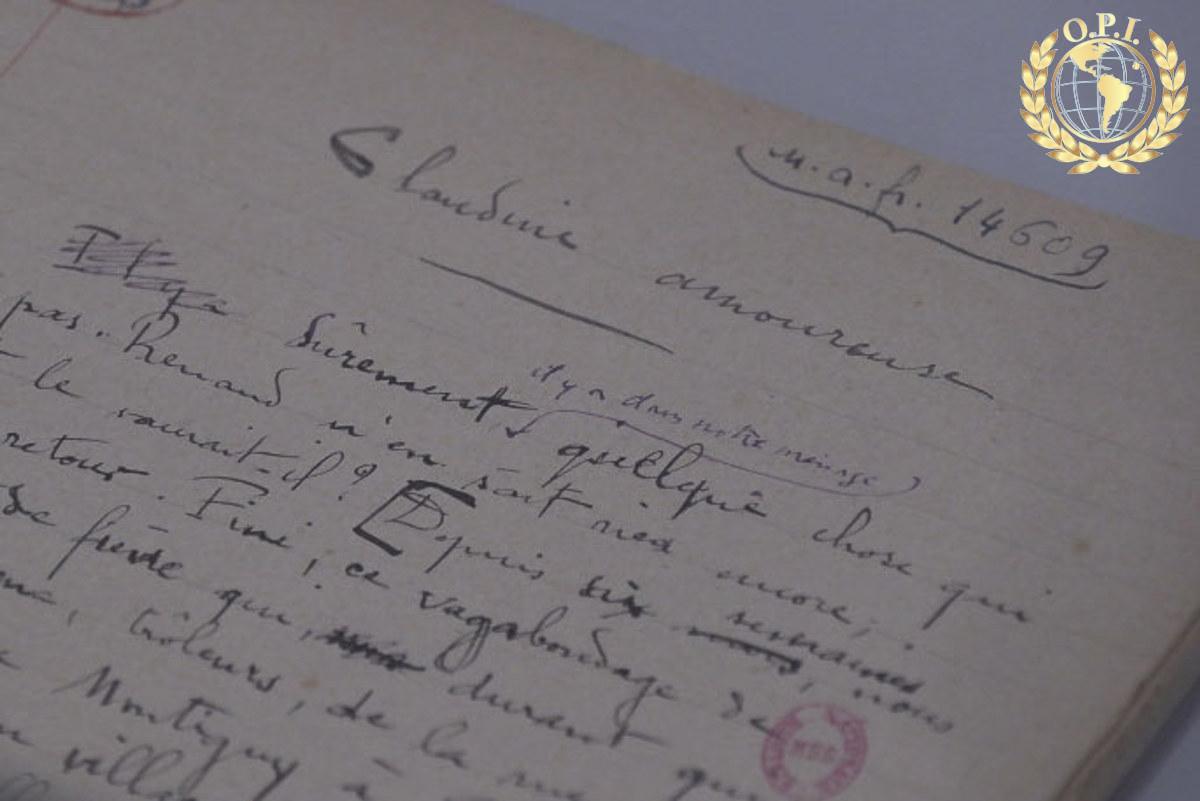 O.P.I.
n. a. fr. 14609
Claudine amoureuse
il y a dans notre ménage
Il y a Sûrement, quelque chose qui
pas. Renaud n'en sait rien encore ;
le saurait-il ? Depuis six semaines nous
retour. Fini, ce vagabondage de
de fièvre qui, durant
trôleurs, de la rue
Montigny à